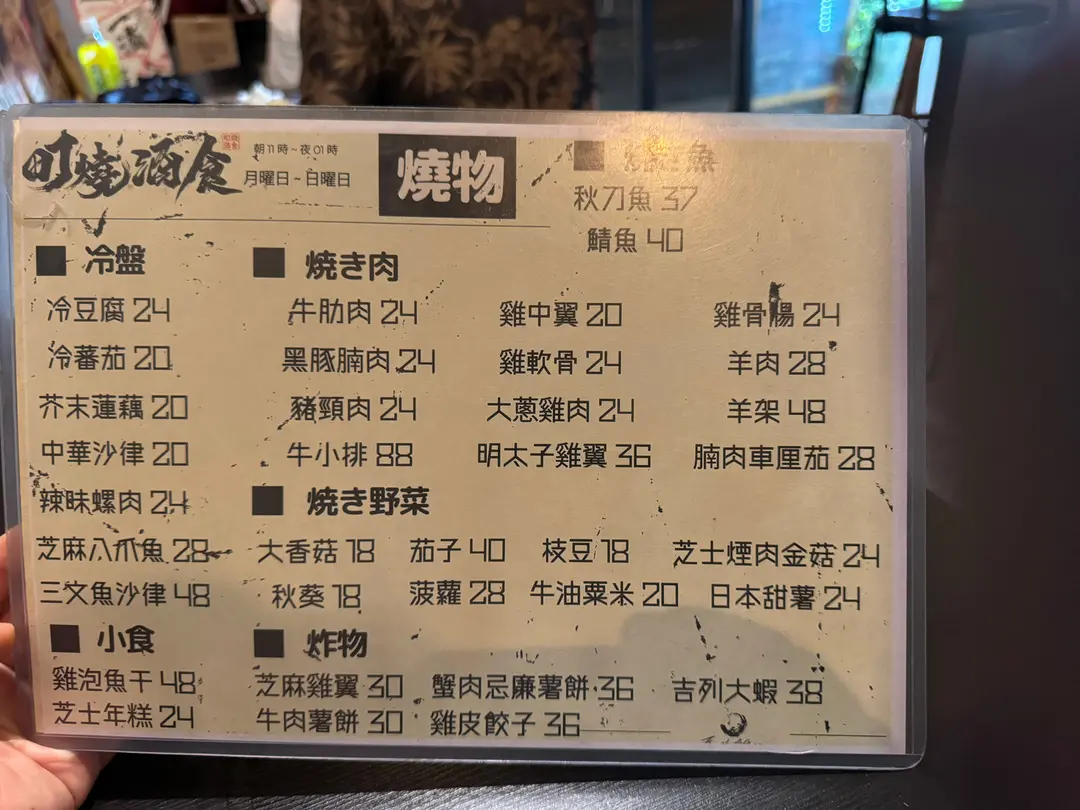 叮燒酒食
朝11時~夜01時
月曜日~日曜日
燒物
魚
秋刀魚 37
鯖魚 40
冷盤
冷豆腐 24
冷蕃茄 20
芥末蓮藕 20
中華沙律 20
辣味螺肉 24
芝麻八爪魚 28
三文魚沙律 48
焼き肉
牛肋肉 24 雞中翼 20 雞骨腸 24
黑豚腩肉 24 雞軟骨 24 羊肉 28
豬頸肉 24 大蔥雞肉 24 羊架 48
牛小排 88 明太子雞翼 36 腩肉車厘茄 28
焼き野菜
大香菇 18 茄子 40 枝豆 18 芝士煙肉金菇 24
秋葵 18 菠蘿 28 牛油粟米 20 日本甜薯 24
小食
雞泡魚干 48
芝士年糕 24
炸物
芝麻雞翼 30 蟹肉忌廉薯餅 36 吉列大蝦 38
牛肉薯餅 30 雞皮餃子 36